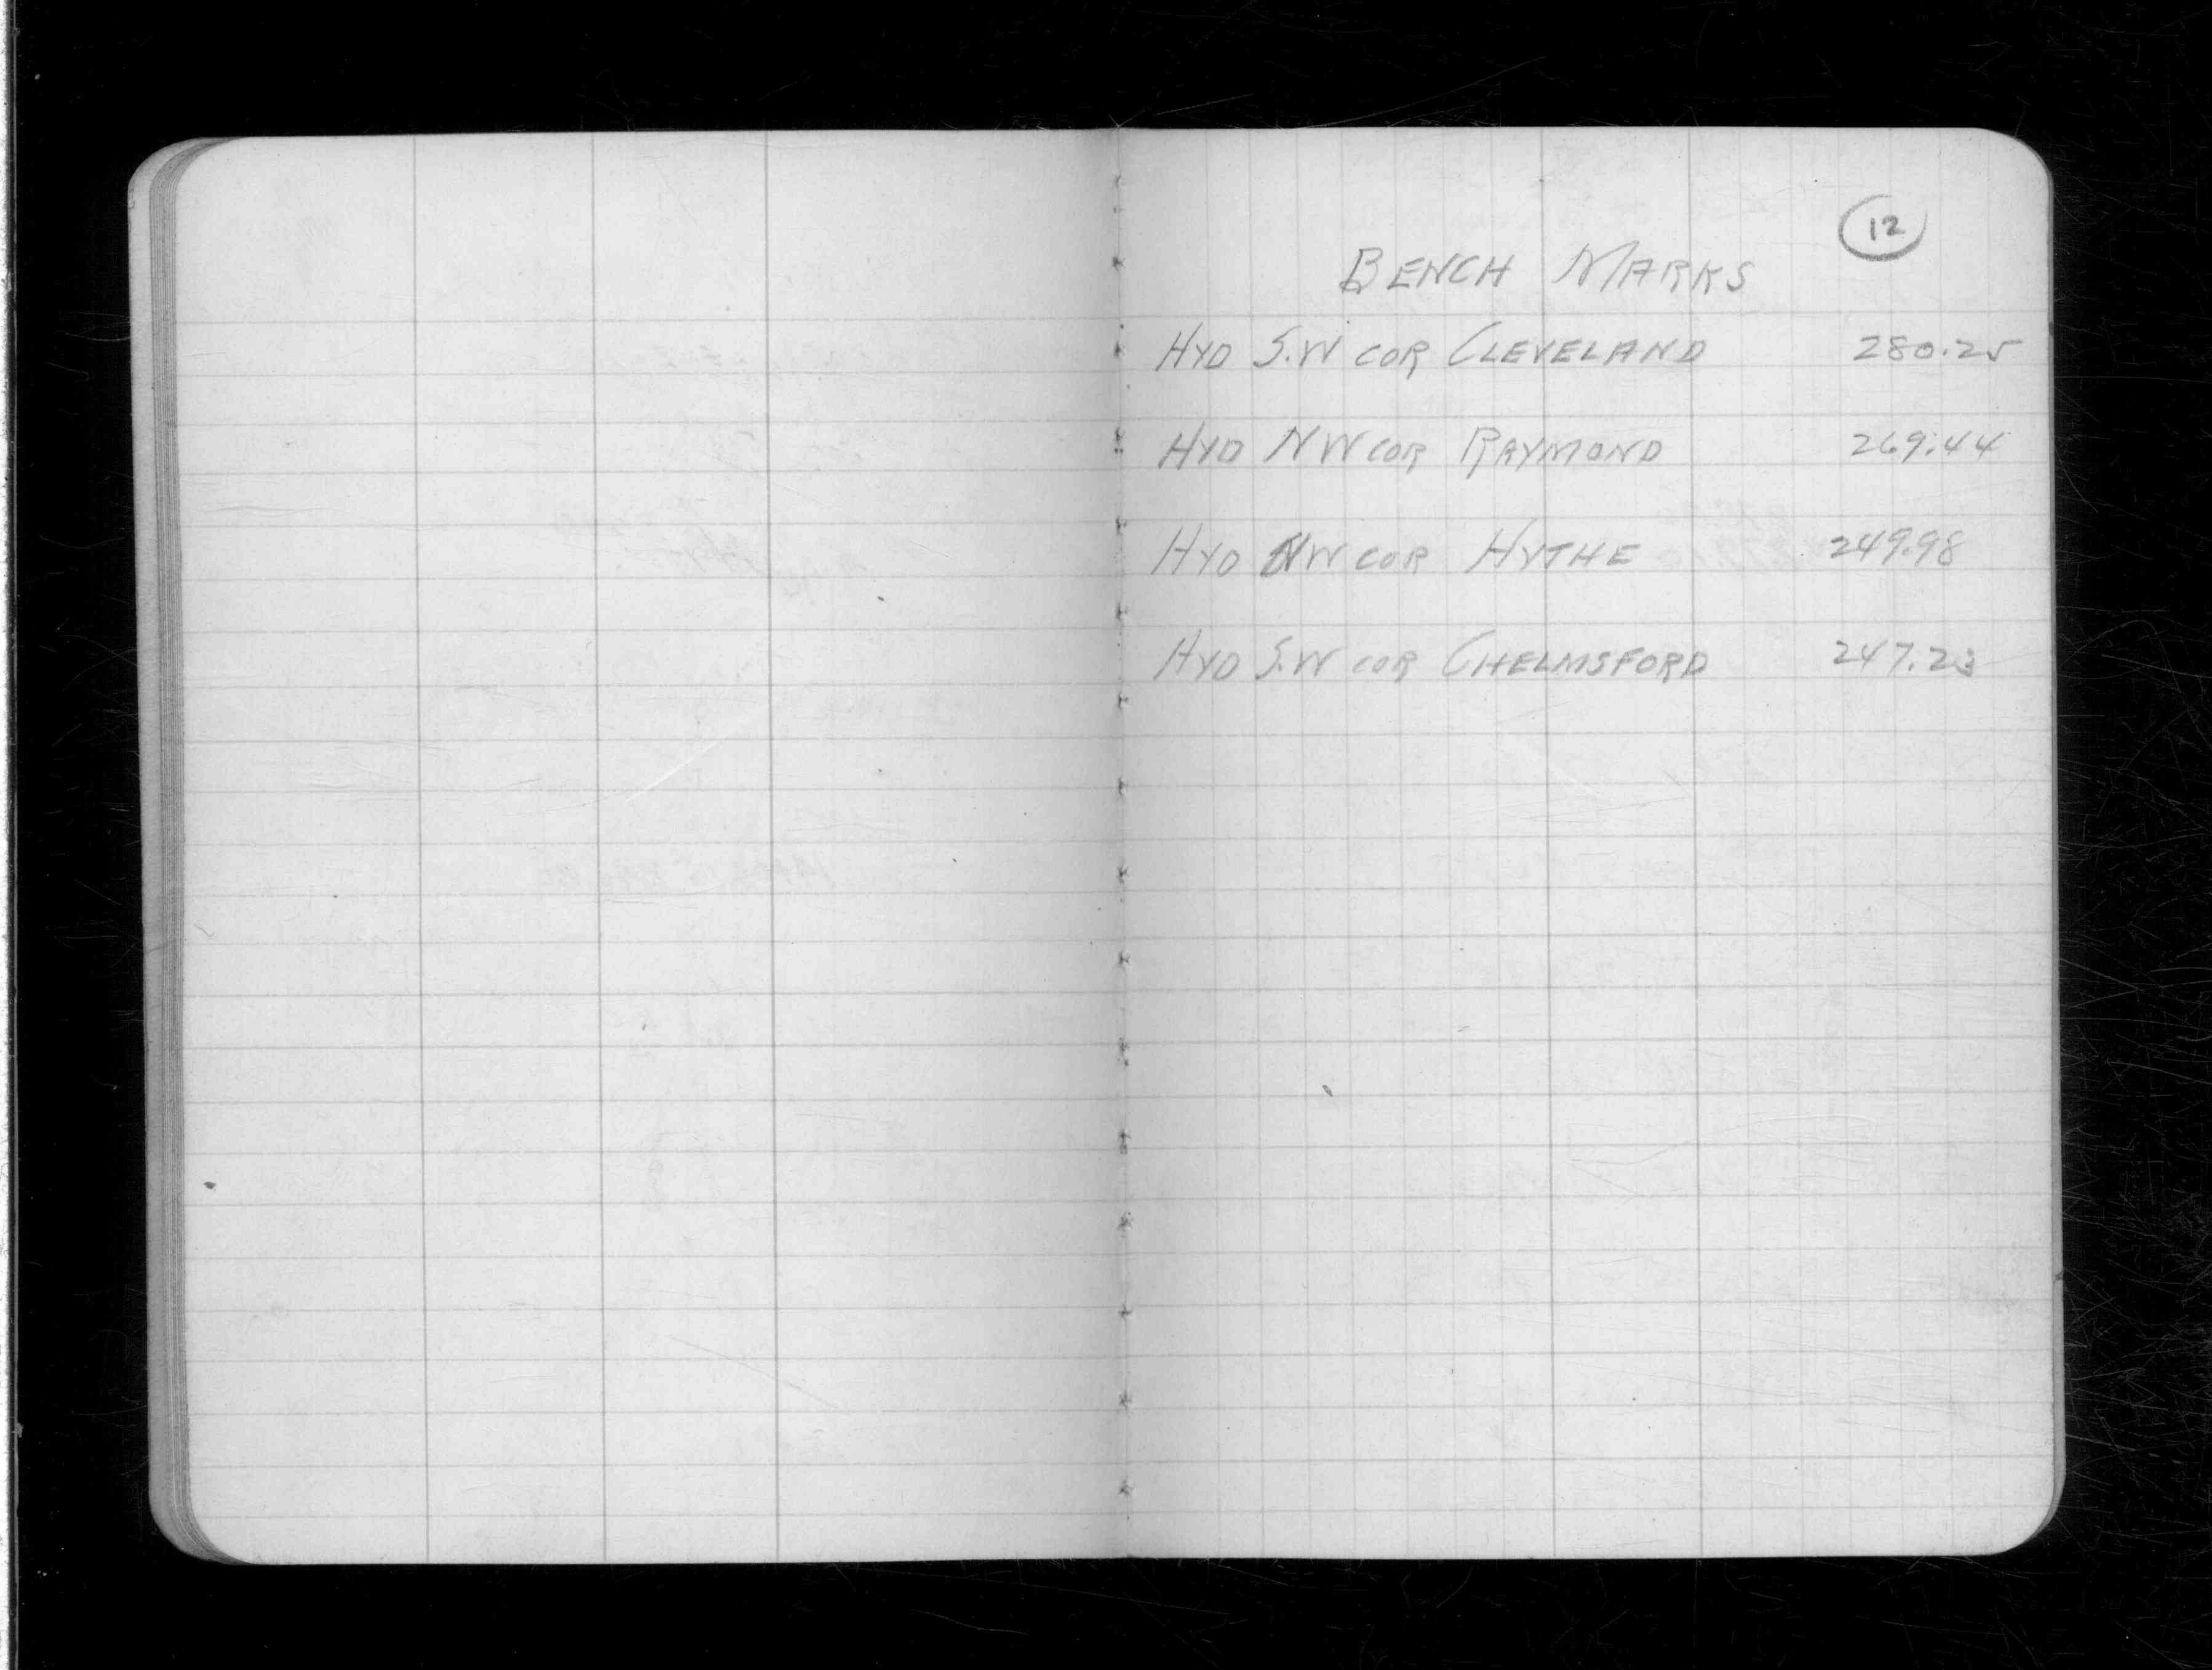 12
BENCH MARKS
HYD S.W COR CLEVELAND 280.25
HYD NW COR RAYMOND 269.44
HYD NW COR HYTHE 249.98
HYD S.W COR CHELMSFORD 247.23